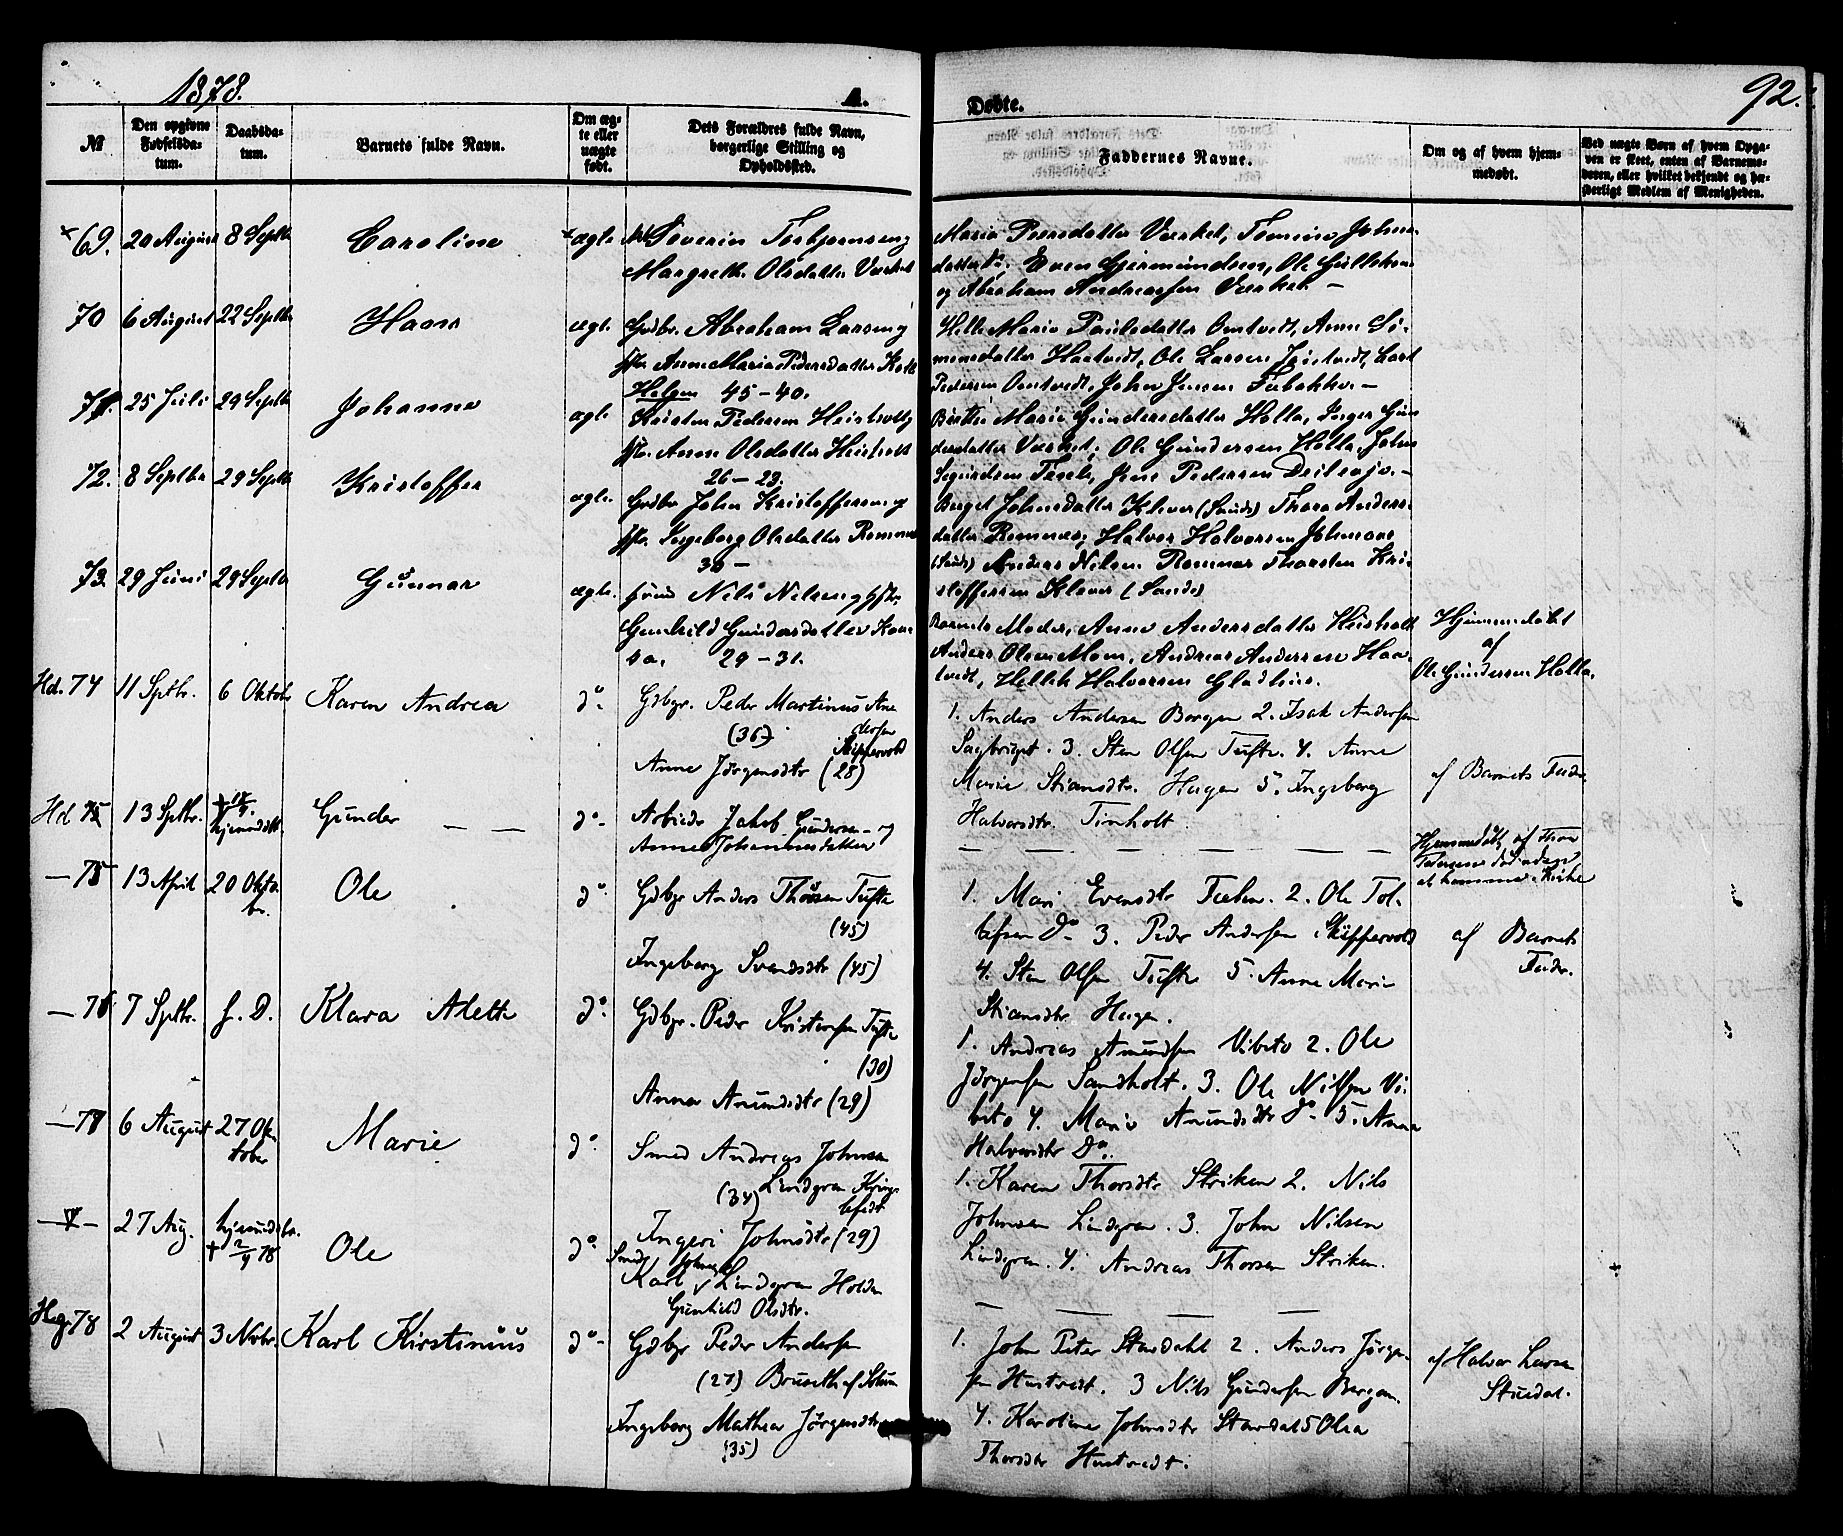 1878.
A.
Døbte.
92.
№
Den opgivne Fødselsdatum.
Daabsdatum.
Barnets fulde Navn.
Om ægte eller uægte født.
Dets Forældres fulde Navn, borgerlige Stilling og Opholdssted.
Faddernes Navne.
Om og af hvem hjemmedøbt.
Ved uægte Børn af hvem Opgaven er skeet, enten af Barnemoderen, eller hvilket bekjendt og hæderligt Medlem af Menigheden.
69. 20 August 8 Septbr Caroline ægte Severin Torbjørnsen og
Margrethe Olsdatter Værket
Maria Peersdatter Værket, Tomine Johns
datter do, Even Gjermundsen, Ole Gullichsen
og Abraham Andreassen Værket. —
70 6 August 22 Septbr Hans ægte. Gdbr. Abraham Larsen og
Hst. Anne Maria Pedersdatter
Holgen 45–40.
Helle Maria Paulsdatter Omtvedt, Anne Si-
monsdatter Haatvedt, Ole Larsen Tvetvedt, Lars
Pedersen Omtvedt, John Jensen
71. 25 Juli 29 Septbr Johanne ægte Kristen Pedersen Heisholt og
Hst. Anne Olsdatter Heisholt
26–23.
Birthe Maria Gundersdatter Holla, Inger Gun
dersdatter Værket, Ole Gundersen Holla, John
Jens Pedersen
72. 8 Septbr 29 Septbr Kristoffer ægte. Gdbr John Kristoffersen og
Hst. Ingeborg Olsdatter Romnes
30 –
Berget Johnsdatter Klever (Sande) Thora Anders-
datter Romnes, Halvor Halvorsen
(Sande) Anders Nilsen Romnes Thorsten Kri-
stoffersen Klever (Sande)
73. 29 Juni 29 Septbr Gunnar ægte. Nils Nilsen og Hst.
Gunhild Gundersdatter
29–31.
Barnets Moder, Anne Andersdatter Heisholt
Anders Olsen Moen, Andreas Andersen Haa-
tvedt, Hellik Halvorsen Gladhus.
Hjemmedøbt
af
Ole Gundersen Holla.
Hd. 74 11 Sptbr. 6 Oktobr Karen Andrea do. Gdbgr. Peder Martinus Anderssen
(36) Skippervold
Anne Jørgensdtr (28)
1. Anders Andersen Borgen 2. Isak Andersen
3. Sten Olsen Tufte. 4. Anne
Marie Stiansdtr. Hagen 5. Ingeborg
Halvorsdtr. Tinholt.
af Barnets Fader
Hd 13 Sptbr. hjemmedøbt. Gunder — — do- Arbeider Jakob Gundersen og
Anne Johannesdatter
— — — — — —
Hjemmedøbt, af Thor
Pedersen
— 75 13 April 20 Oktobr. Ole do. Gdbgr Anders Thorsen Tufte
(45)
Ingeborg Svendsdtr (45)
1. Mari Evensdtr 2. Ole Tol-
lefsen do. 3. Peder Andersen Skippervold
4. Sten Olsen Tufte 5. Anne Marie
Stiansdtr Hagen.
af Barnets
Fader.
— 76 7 Sptbr. s. D. Klara Alette do. Gdbgr. Peder Kristensen Tufte
(30)
Anna Amundsdtr (29)
1. Andreas Amundsen Vibeto 2. Ole
Jørgensen Sandholt. 3. Ole Nilsen Vi-
beto 4. Marie Amundsdtr do. 5. Anna
Halvorsdtr Do.
— 77 6 August 27 Oktober Marie do. Smed Andreas Johnsen
(34) Lindgren
Ingeri Johnsdtr (29)
1. Karen Thorsdtr Striken 2. Nils
Johnsen Lindgren. 3. John Nilsen
Lindgren. 4. Andreas Thorsen Striken.
27 Aug. Ole do. Smed
Karl Johnsen Lindgren Holden
Gunhild Olsdtr.
— — — —
78 2 August 3 Novbr. Karl Kirstinius do- Gdbgr Peder Andersen
(27)
Ingeborg Mathea Jørgensdtr
(35)
1. John Peter Stardahl 2. Anders Jørgen-
sen Hustvedt. 3 Nils Gundersen Bergan.
4. Karoline Johnsdtr Stardal 5 Olea
Thorsdtr Hustvedt.
af Halvor Larsen